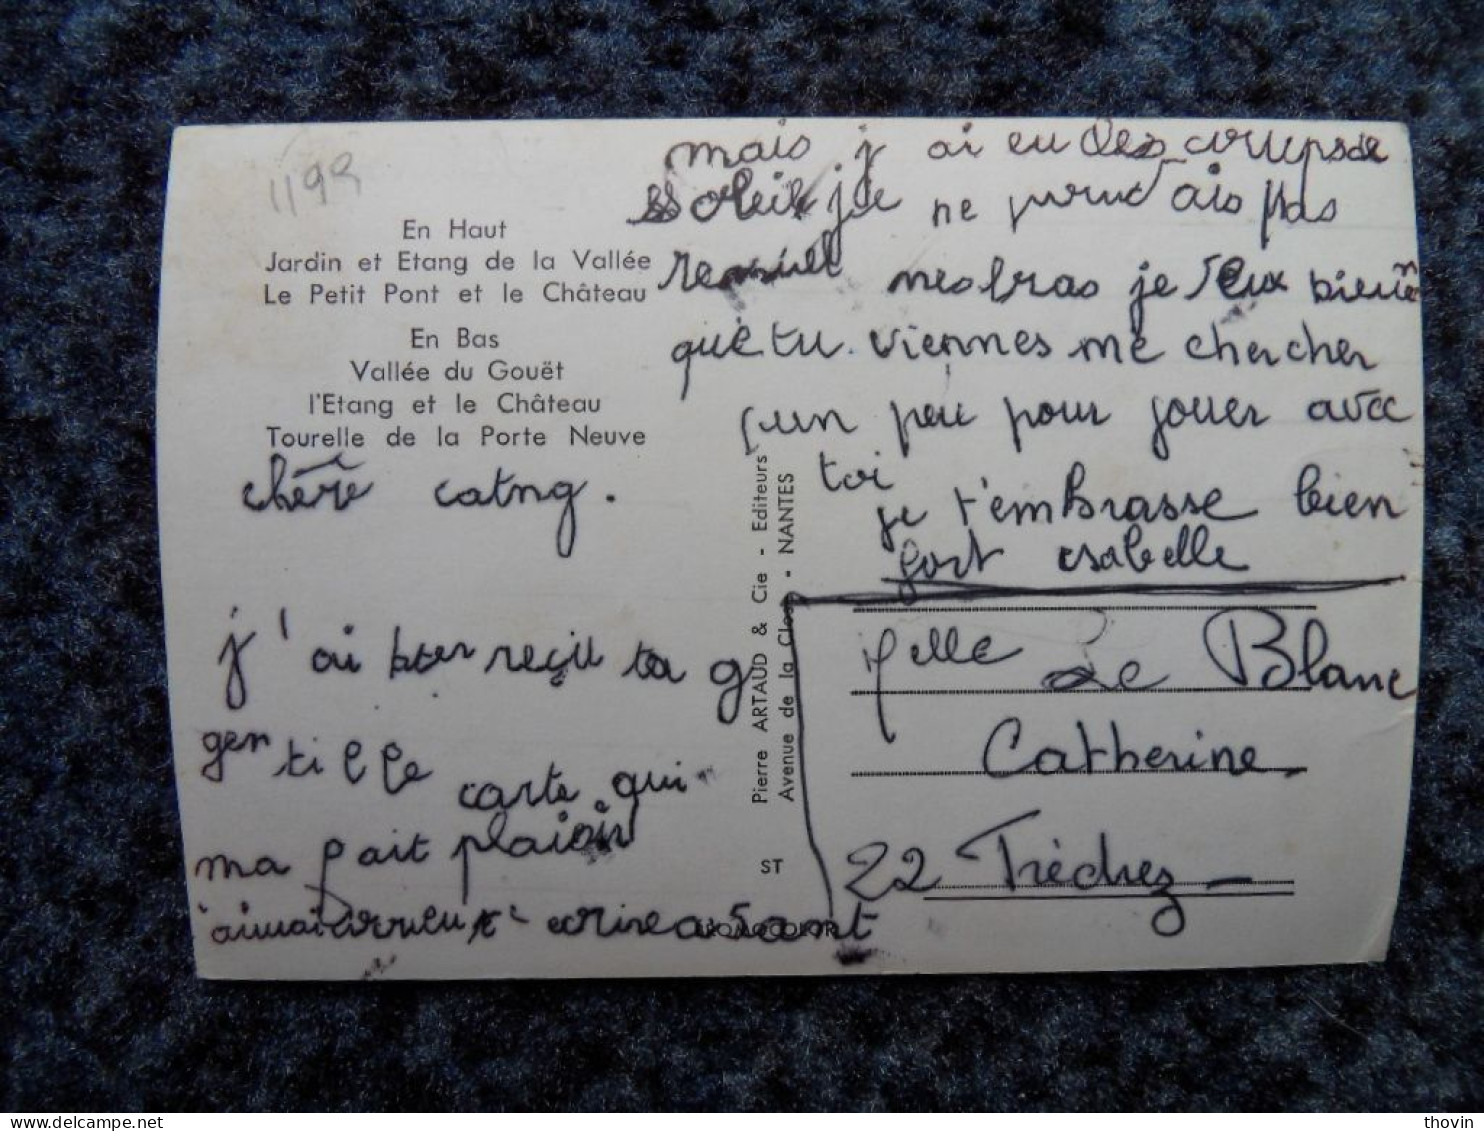 1199
En Haut
Jardin et Etang de la Vallée
Le Petit Pont et le Château
En Bas
Vallée du Gouët
l'Etang et le Château
Tourelle de la Porte Neuve
chère
j'ai bien reçu ta g
gentille carte qui
ma fait plaisir
avant
mais j ai eu des coups de
soleil je ne pas
remuer mes bras je veux bien
que tu viennes me chercher
un peu pour jouer avec
toi
je t'embrasse bien
fort isabelle
Pierre ARTAUD & Cie - Editeurs
Avenue de la Close - NANTES
ST
Melle Le Blanc
Catherine
22 Trédrez
thovin